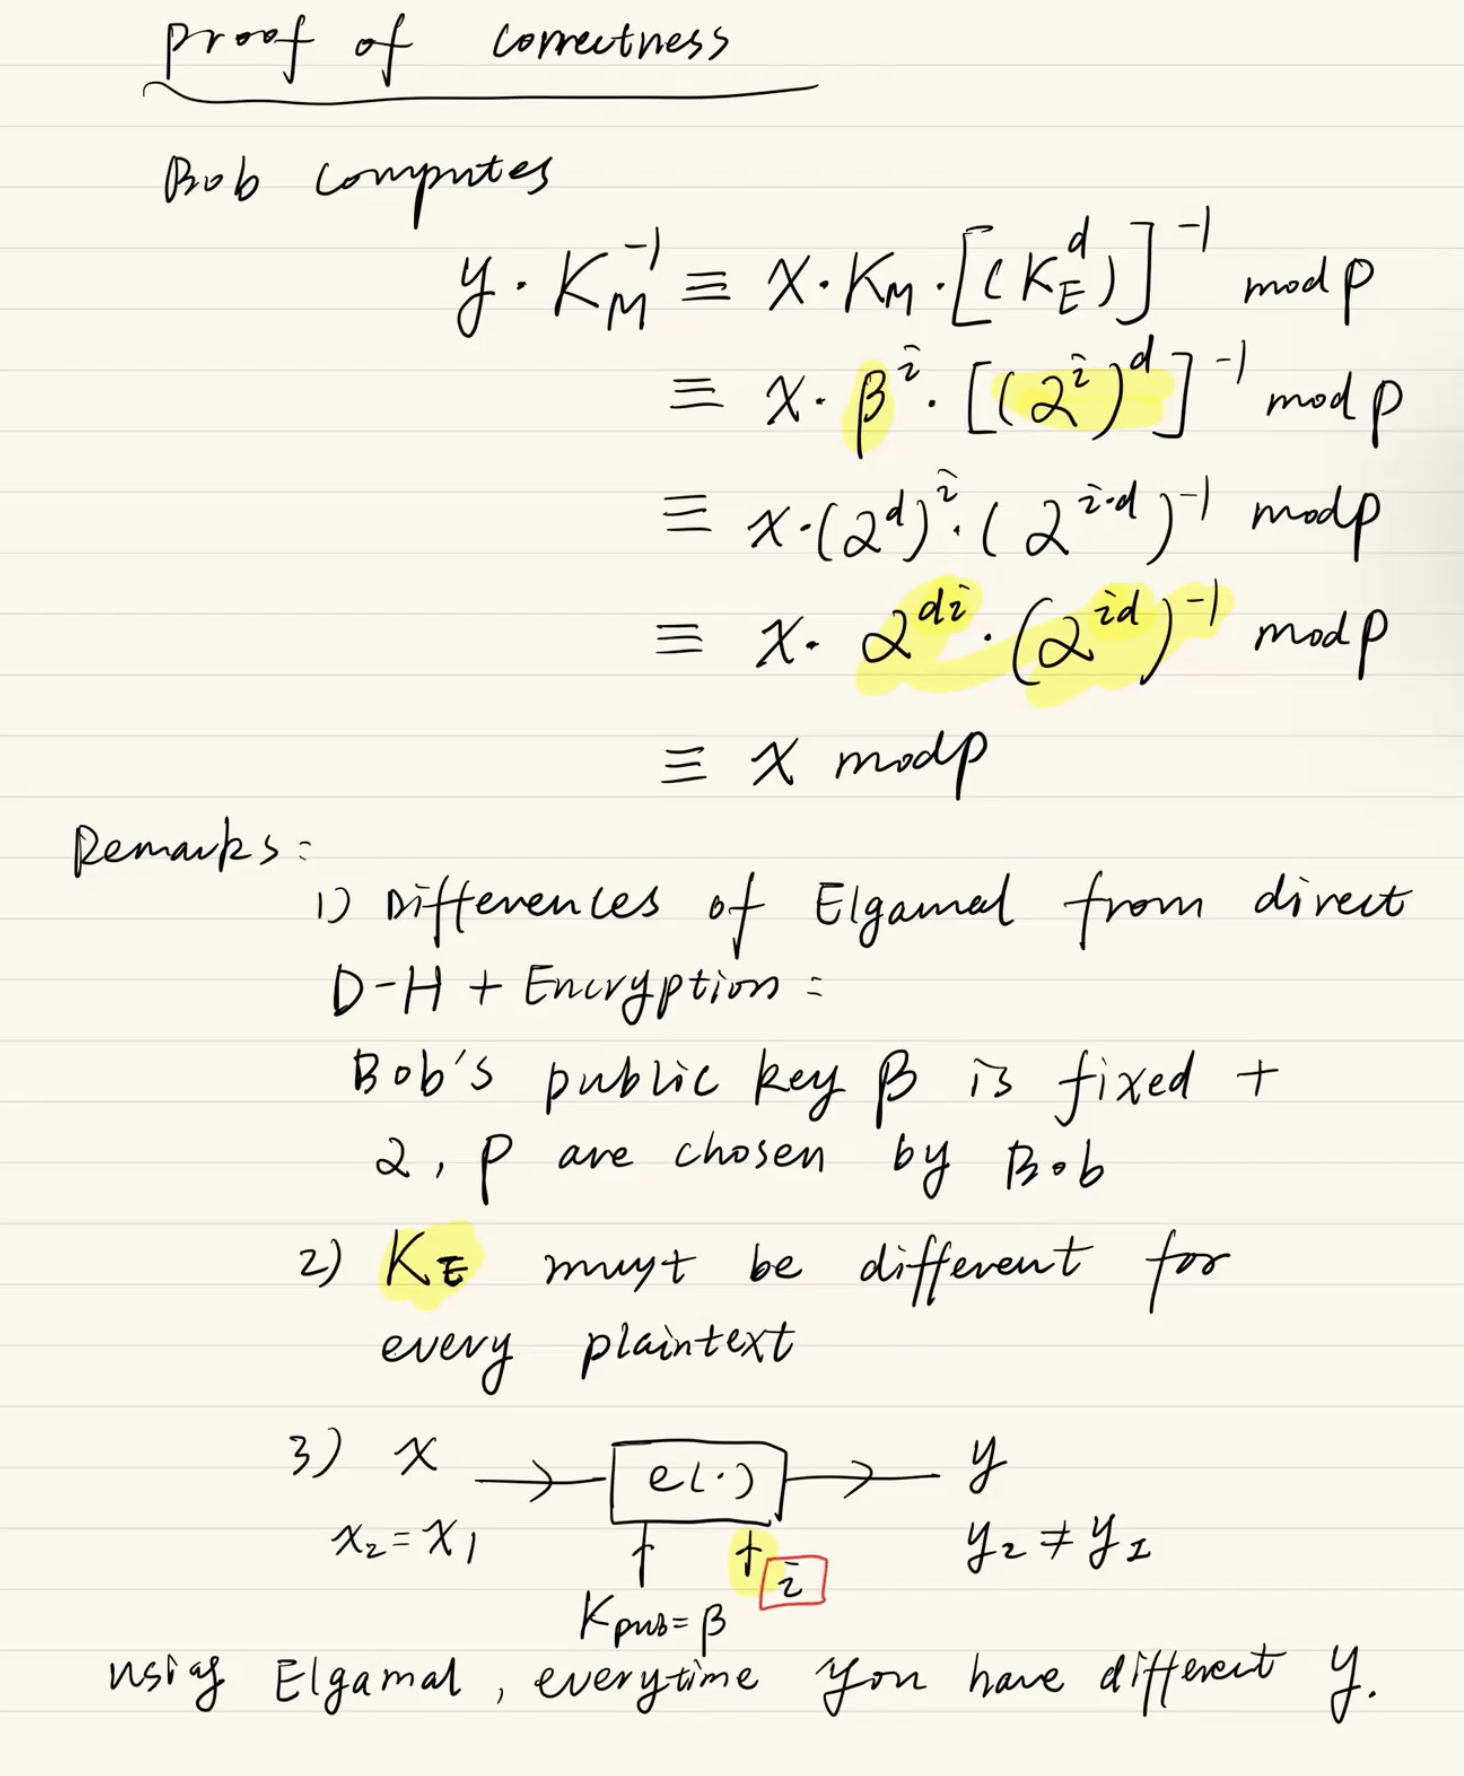 Proof of Correctness
Bob computes
y · K_M^-1 ≡ x · K_M · [(K_E^d)]^-1 mod p
≡ x · β^i · [(α^i)^d]^-1 mod p
≡ x · (α^d)^i · (α^i·d)^-1 mod p
≡ x · α^di · (α^id)^-1 mod p
≡ x mod p
Remarks:
1) Differences of Elgamal from direct
D-H + Encryption:
Bob's public key β is fixed +
α, p are chosen by Bob
2) K_E must be different for
every plaintext
3) x → e(·) → y
x_2 = x_1 ↑ ↑ i y_2 ≠ y_1
K_pub = β
using Elgamal, everytime you have different y.